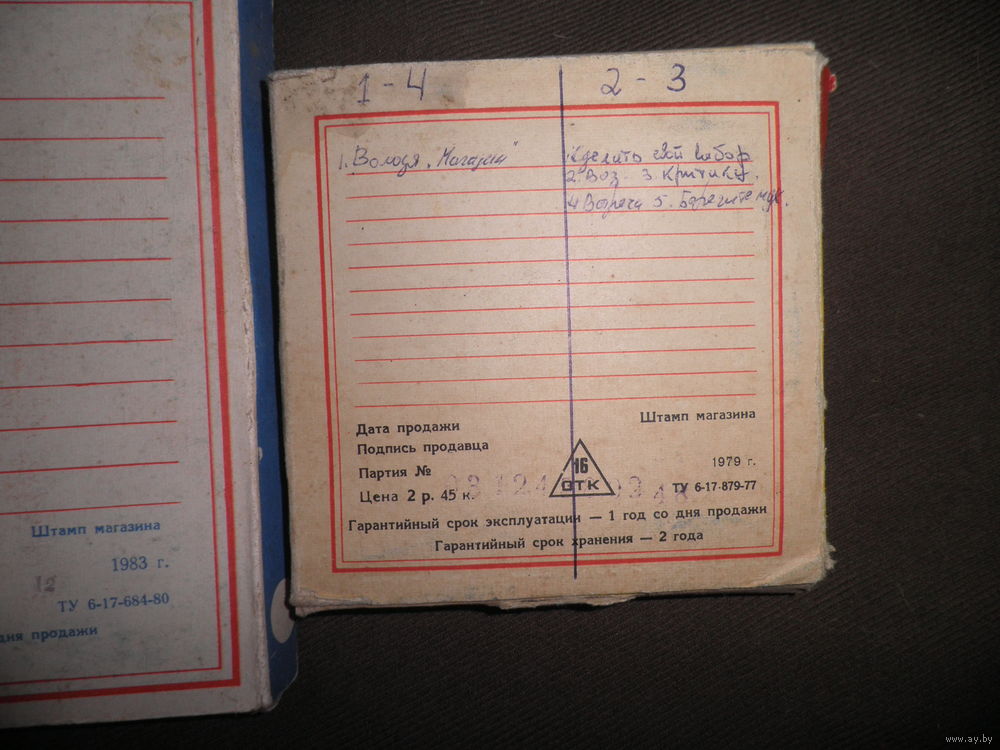 1-4
2-3
1. Володя „Магазин"
Сделать свой выбор
2. Воз. 3. Критику.
4 Встреча 5. Берегите муж.
Дата продажи
Штамп магазина
Подпись продавца
Партия №
16
ОТК
1979 г.
Цена 2 р. 45 к.
ТУ 6-17-879-77
Гарантийный срок эксплуатации — 1 год со дня продажи
Гарантийный срок хранения — 2 года
Штамп магазина
1983 г.
12
ТУ 6-17-684-80
дня продажи
www.ay.by